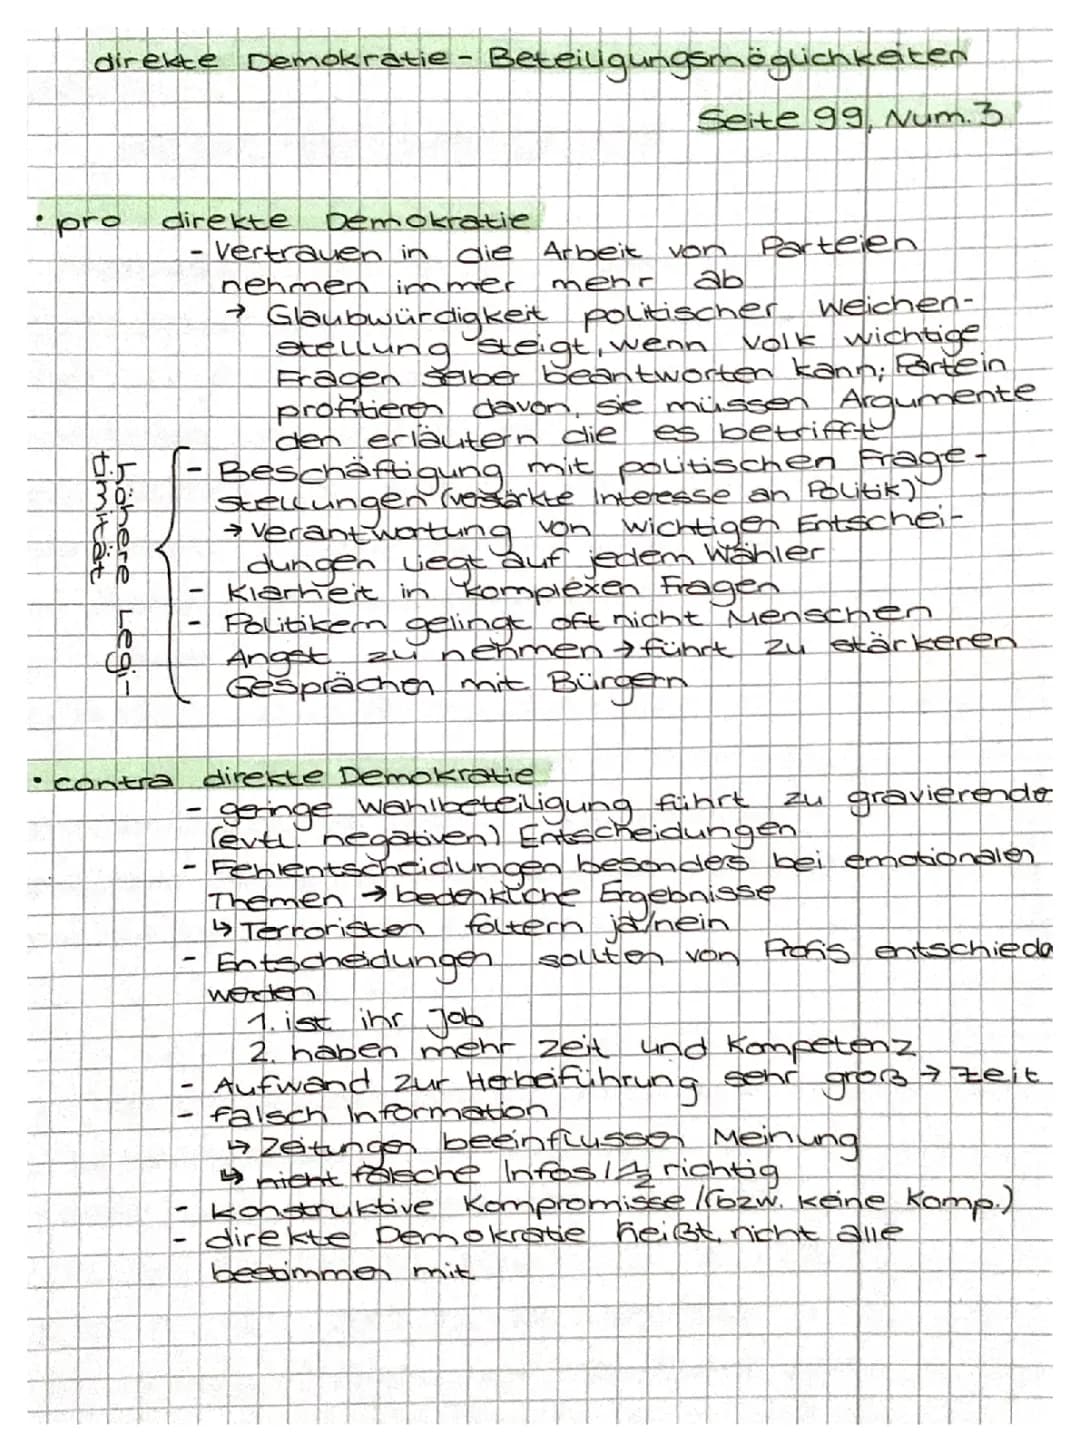 direkte Demokratie - Beteiligungsmöglichkeiten
Seite 99, Num. 3
• pro direkte Demokratie
- Vertrauen in die Arbeit von Parteien
nehmen immer mehr ab
→ Glaubwürdigkeit politischer Weichen-
stellung steigt, wenn Volk wichtige
Fragen selber beantworten kann; Partein
profitieren davon, sie müssen Argumente
den erläutern die es betrifft
höhere Legi-
timität
- Beschäftigung mit politischen Frage-
stellungen (verstärkte Interesse an Politik)
→ Verantwortung von wichtigen Entschei-
dungen liegt auf jedem Wähler
- Klarheit in komplexen Fragen
- Politikern gelingt oft nicht Menschen
Angst zu nehmen → führt zu stärkeren
Gesprächen mit Bürgern
• contra direkte Demokratie
- geringe Wahlbeteiligung führt zu gravierende
(evtl. negativen) Entscheidungen
- Fehlentscheidungen besonders bei emotionalen
Themen → bedenkliche Ergebnisse
↳ Terroristen foltern ja/nein
- Entscheidungen sollten von Profis entschiede
werden
1. ist ihr Job
2. haben mehr Zeit und Kompetenz
- Aufwand zur Herbeiführung sehr groß → Zeit
- falsch Information
↳ Zeitungen beeinflussen Meinung
↳ nicht falsche Infos / ½ richtig
- konstruktive Kompromisse / (bzw. keine Komp.)
- direkte Demokratie heißt nicht alle
bestimmen mit